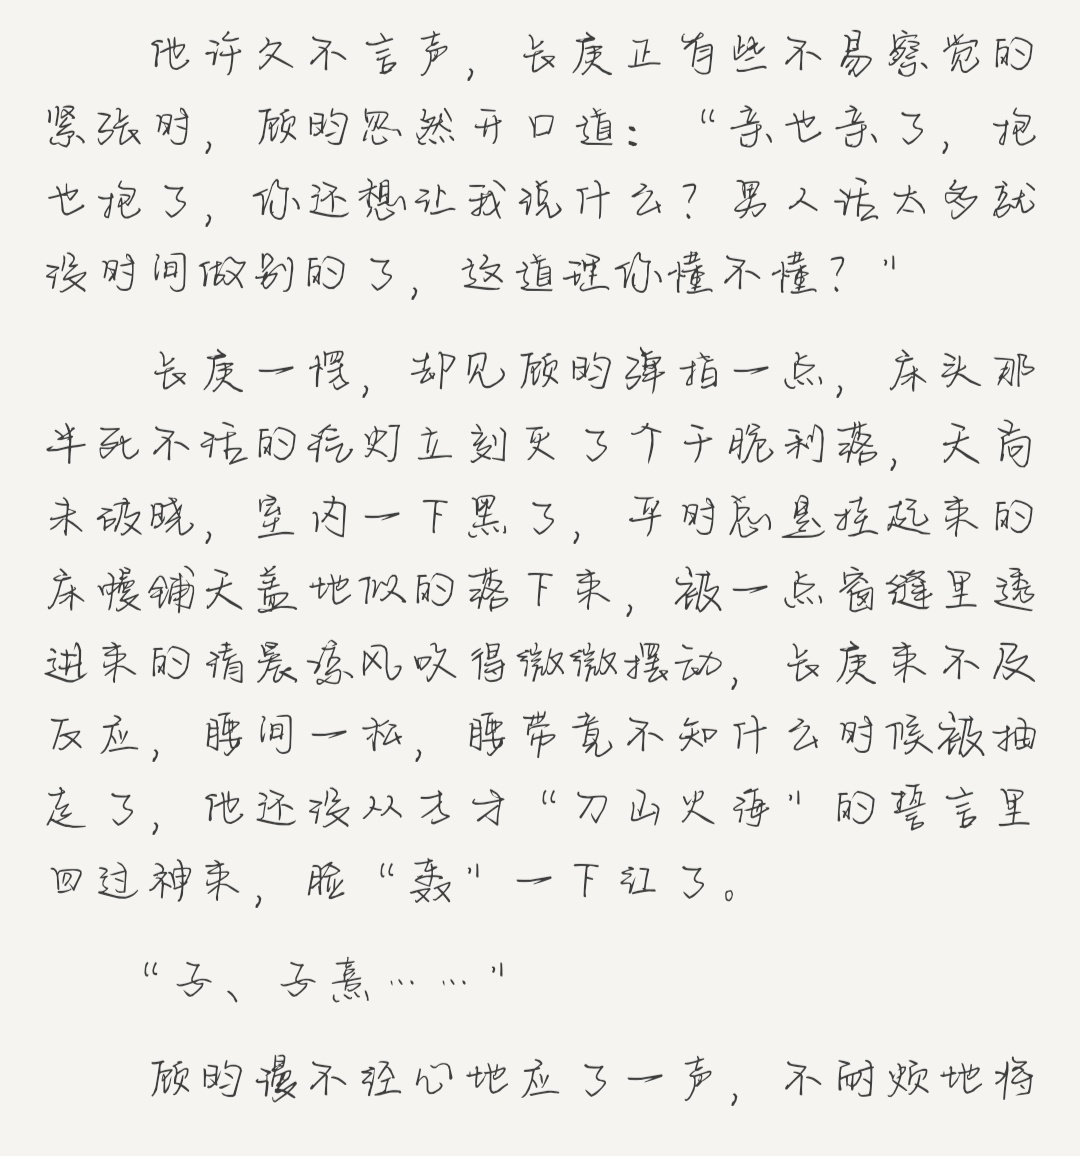 他许久不言声，长庚正有些不易察觉的
紧张时，顾昀忽然开口道：“亲也亲了，抱
也抱了，你还想让我说什么？男人话太多就
没时间做别的了，这道理你懂不懂？”
长庚一愣，却见顾昀弹指一点，床头那
半死不活的汽灯立刻灭了个干脆利落，天尚
未破晓，室内一下黑了，平时总悬挂起来的
床幔铺天盖地似的落下来，被一点窗缝里透
进来的清晨凉风吹得微微摆动，长庚来不及
反应，腰间一松，腰带竟不知什么时候被抽
走了，他还没从方才“刀山火海”的誓言里
回过神来，脸“轰”一下红了。
“子、子熹……”
顾昀漫不经心地应了一声，不耐烦地将